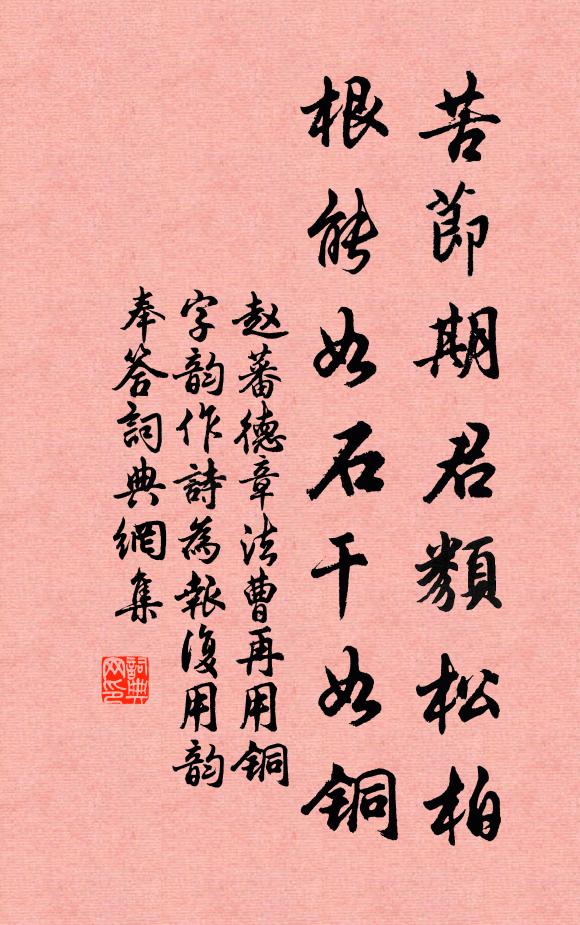 苦節期君類松柏
根能如石干如銅
赵蕃德章法曹再用銅
字韵作詩為報復用韵
奉答詞典網集
詞典网印